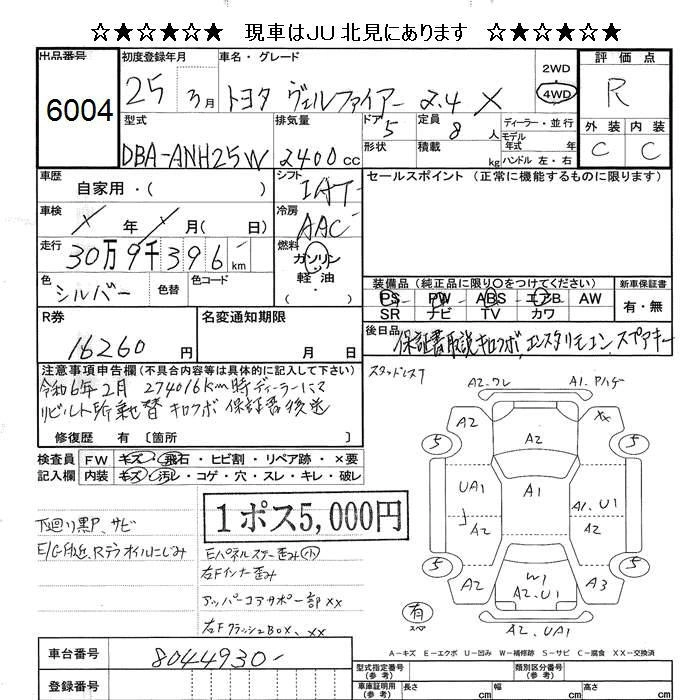 ☆★☆★☆★ 現車はJU北見にあります ☆★☆★☆★
出品番号 初度登録年月 車名・グレード 2WD 4WD 評価点
6004 25 3月 トヨタ ヴェルファイアー 2.4 X R
型式 排気量 ドア 5 定員 8人 ディーラー・並行 外装 内装
DBA-ANH25W 2400cc 形状 積載 kg モデル年式 年 ハンドル 左・右 C C
車歴 自家用・( ) シフト IAT セールスポイント (正常に機能するものに限ります)
車検 X 年 X 月( 日) 冷房 AAC
走行 30万9千396km 燃料 ガソリン・軽油・
色 シルバー 色替 色コード
装備品 (純正品に限り○をつけてください) 新車保証書
PS PW ABS エアB AW 有・無
SR ナビ TV カワ
R券 16260円 名変通知期限 月 日
後日品 保証書取説キロクボ、エンスタリモコン、スペアキー
スタッドレス7
注意事項申告欄 (不具合内容等は具体的に記入して下さい)
令和6年2月 274016km時ディーラーにて
リビルト所乗せ替 キロクボ 保証書後送
修復歴 有 〔箇所 〕
検査員 FW キズ・飛石・ヒビ割・リペア跡・×要
記入欄 内装 キズ・汚レ・コゲ・穴・スレ・キレ・破レ
1ポス5,000円
下廻り黒P、サビ
Eパネルステー歪み(小)
右Fインナー歪み
アッパーコアサポー部XX
A2.ワレ A1.Pハゲ
A2 XX
5 A2 5
UA1 A1 A1.U1
A2 A2
5 W1 5
A2 A2.U1 A3
有 スペア A2.UA1
A-キズ E-エクボ U-凹み W-補修跡 S-サビ C-腐食 XX-交換済
車台番号 8044930-
登録番号
型式指定番号(参考) 類別区分番号(参考)
車庫証明用(参考) 長さ cm 幅 cm 高さ cm